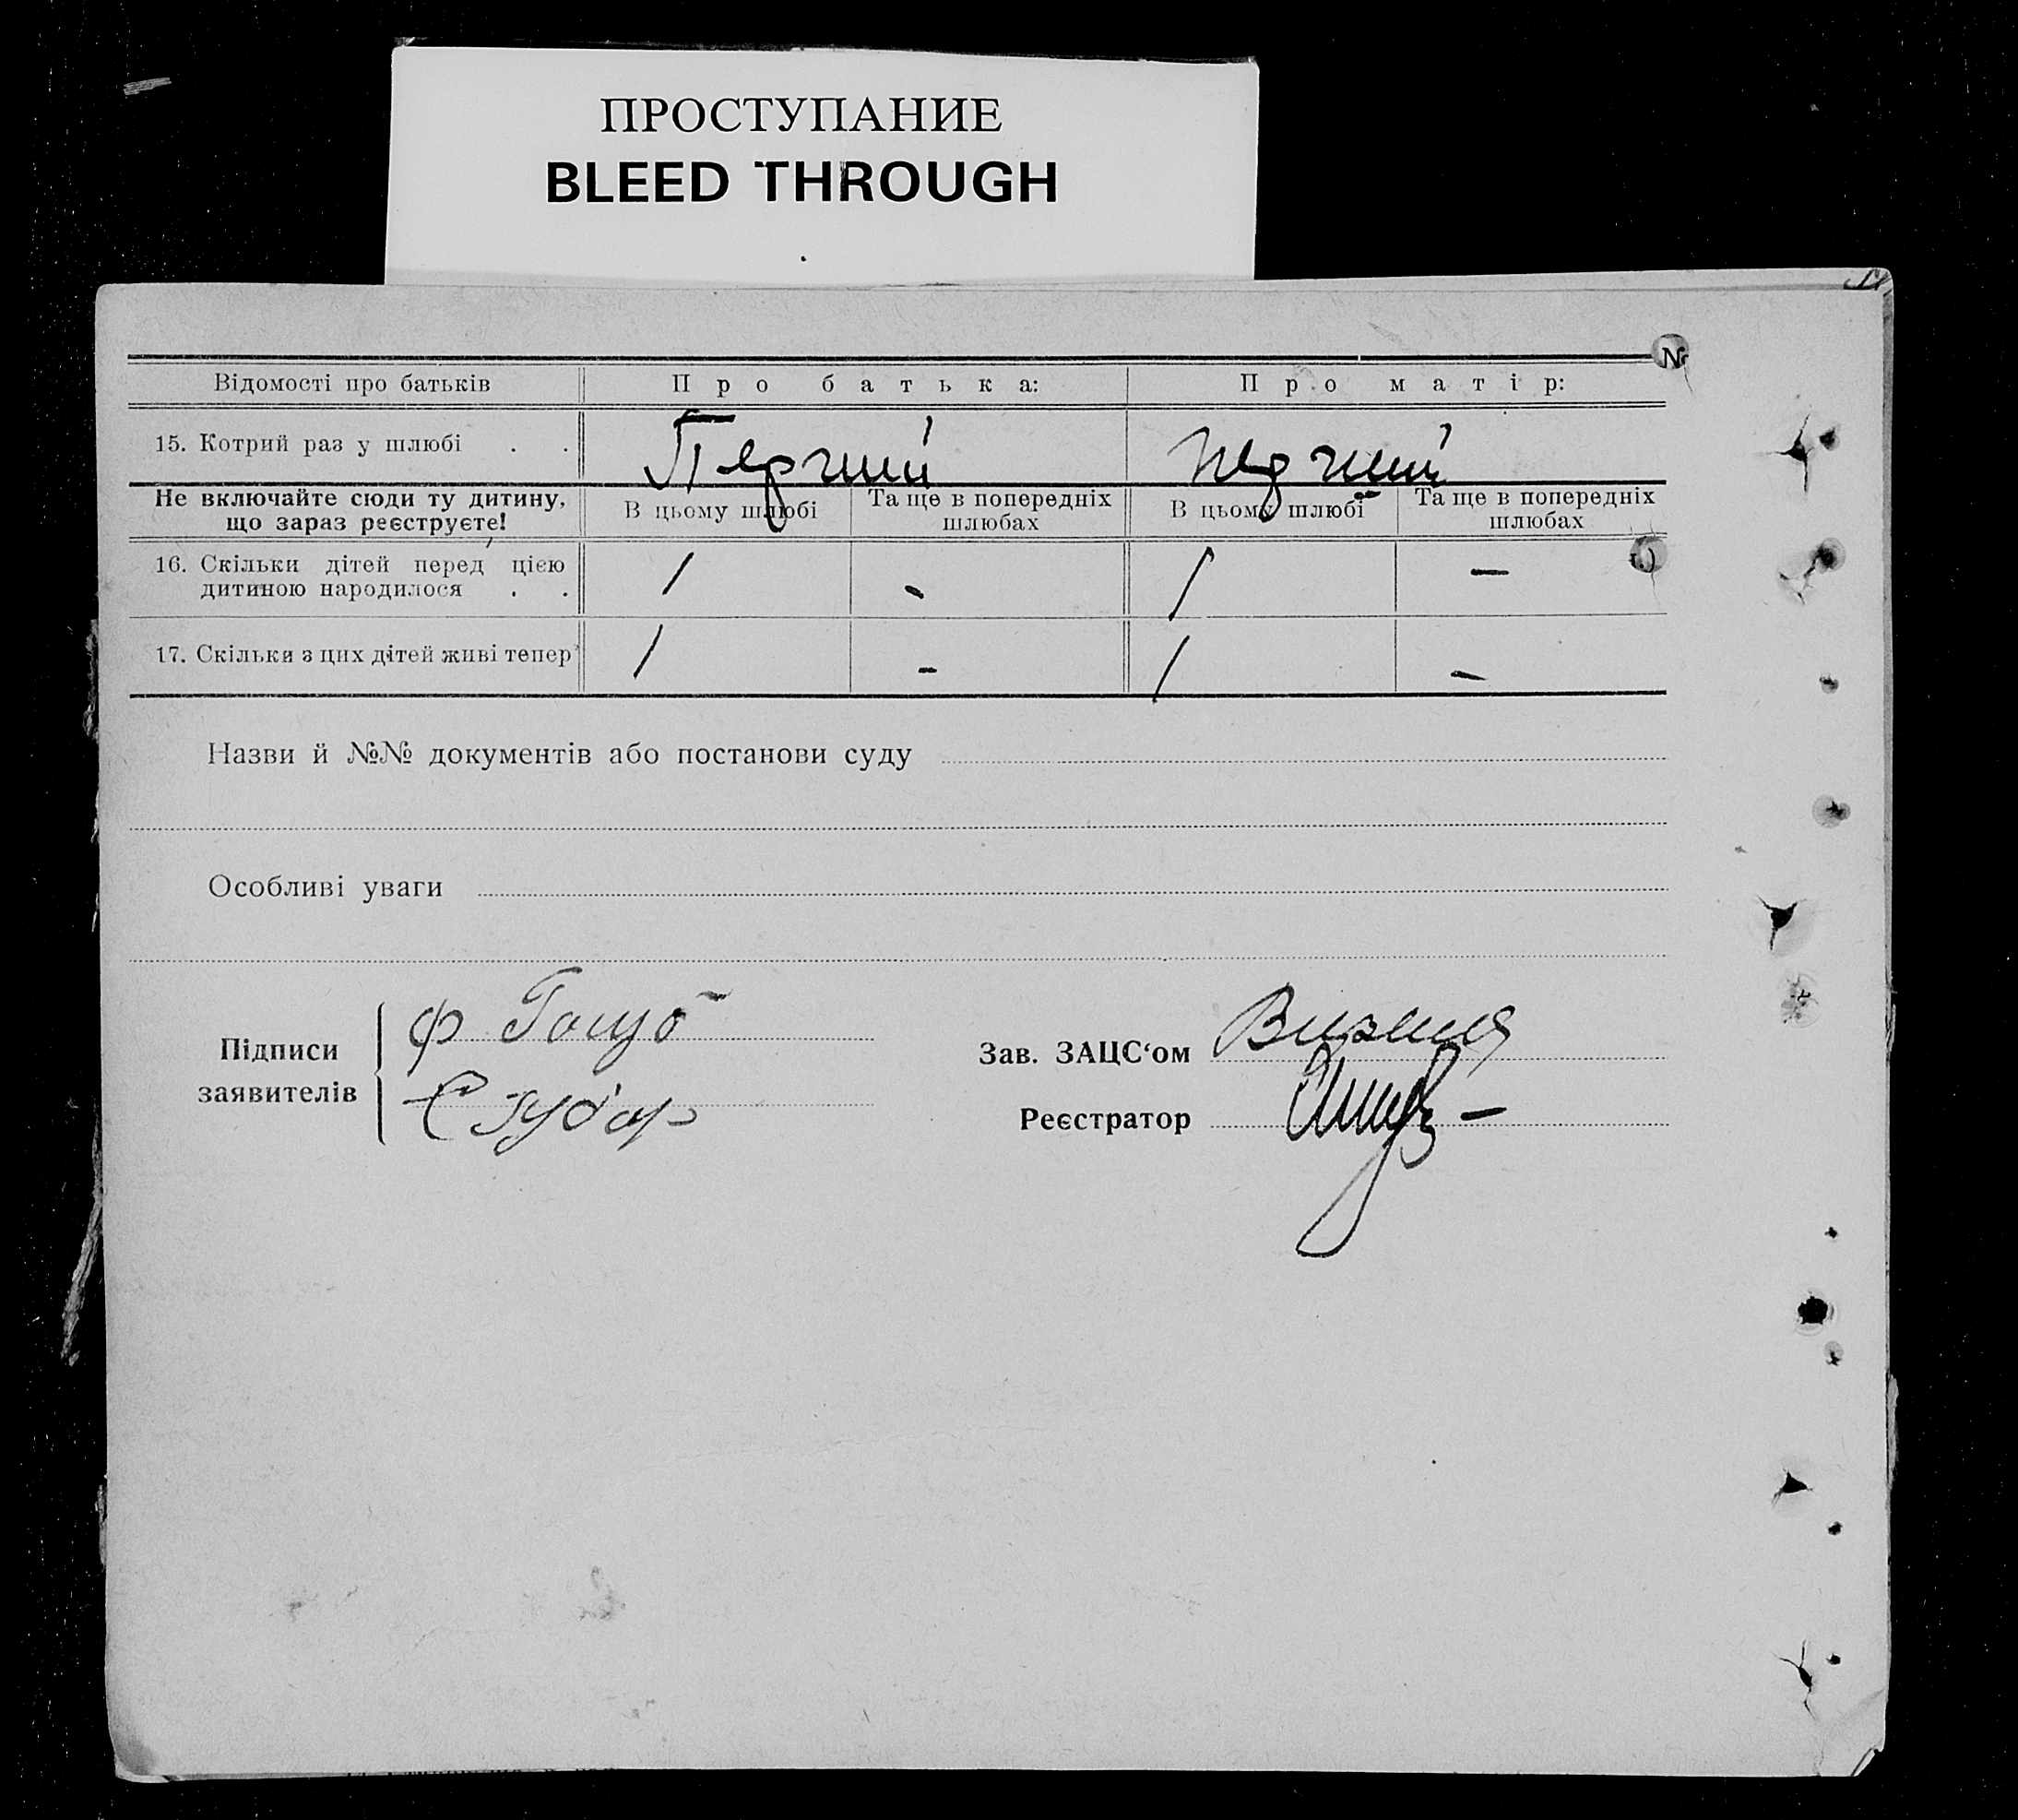 ПРОСТУПАНИЕ
BLEED THROUGH
№
Відомості про батьків Про батька: Про матір:
15. Котрий раз у шлюбі . . Перший перший
Не включайте сюди ту дитину, що зараз реєструєте! В цьому шлюбі Та ще в попередніх шлюбах В цьому шлюбі Та ще в попередніх шлюбах
16. Скільки дітей перед цією
дитиною народилося . . / - / —
17. Скільки з цих дітей живі тепер / - / -
Назви й №№ документів або постанови суду
Особливі уваги
Підписи
заявителів
Ф Голуб
Є Губар
Зав. ЗАЦС‘ом
Реєстратор